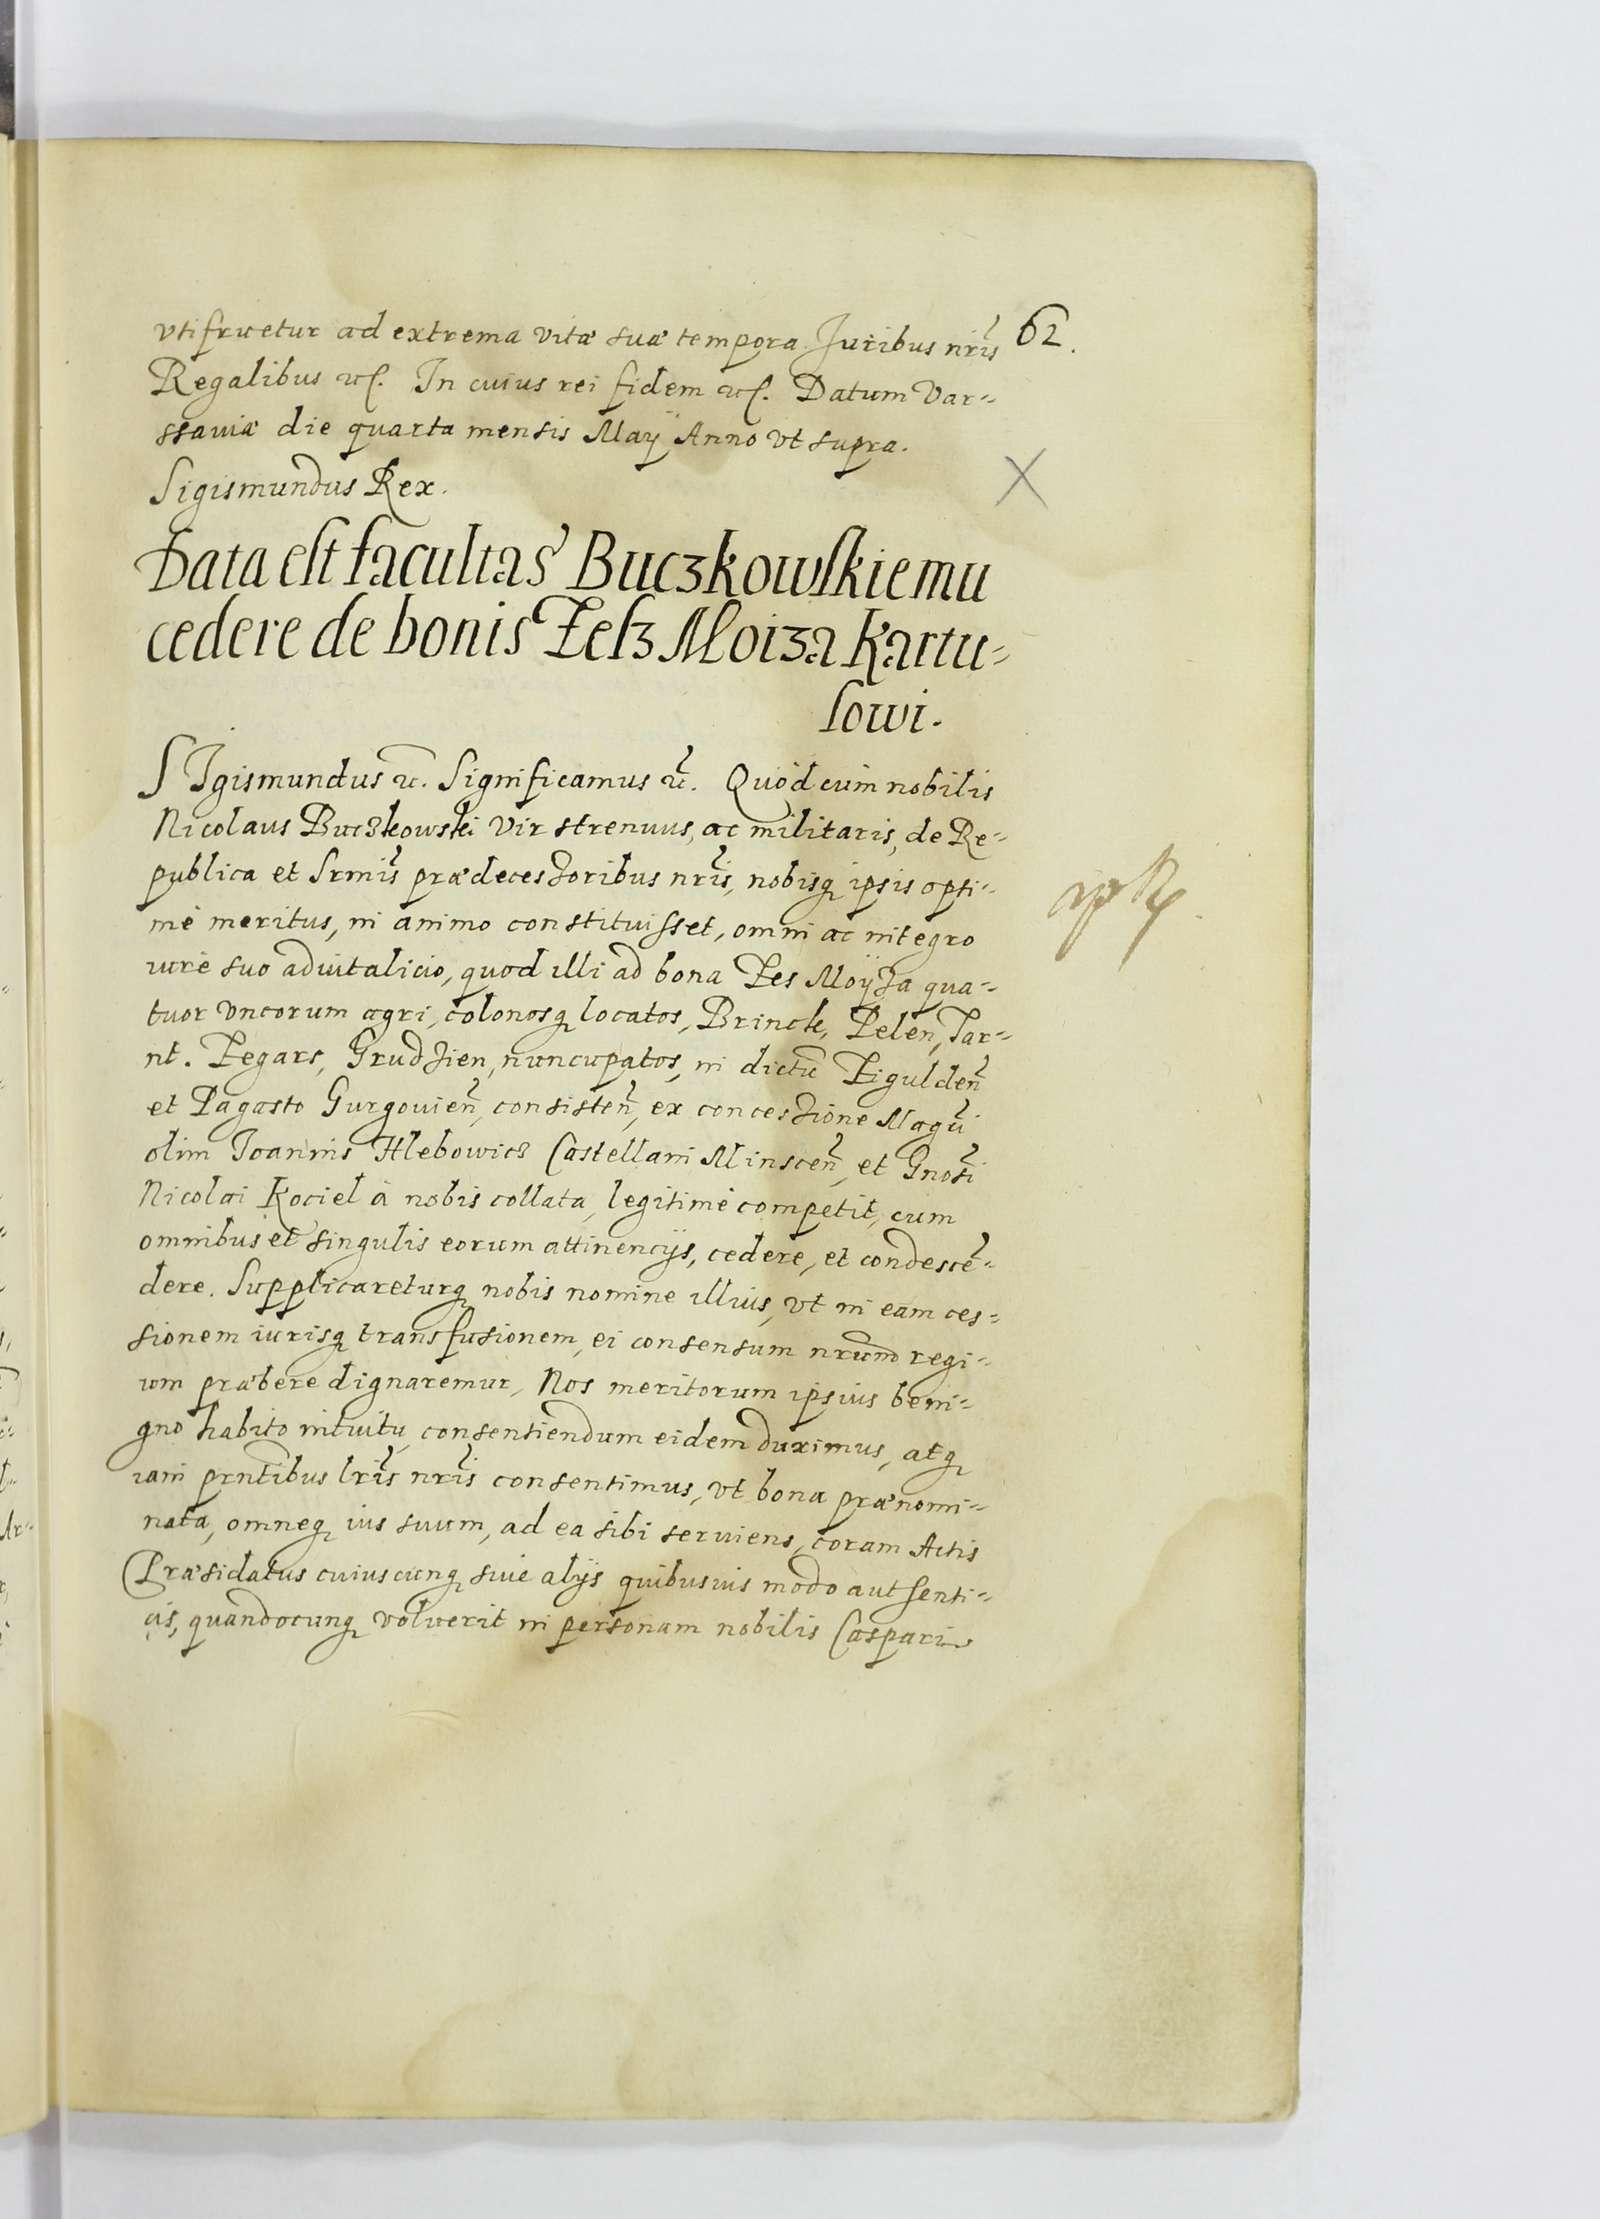 vtifruetur ad extrema vitæ suæ tempora. Juribus nris̃ 62.
Regalibus etc. In cuius rei fidem etc. Datum Var=
ssauiæ die quarta mensis Maÿ Anno vt supra.
Sigismundus Rex.
Data est facultas Buczkowskiemu
cedere de bonis Pesz Moiza Kartu=
sowi.
SIgismundus etc. Significamus etc. Quòd cum nobilis
Nicolaus Buczkowski vir strenuus, ac militaris, de Re=
publica et Srmis̃ prædecessoribus nris̃, nobisq ipsis opti=
mè meritus, in animo constituisset, omni ac integro
iure suo aduitalicio, quod illi ad bona Pes Moÿza qua=
tuor vncorum agri, colonosq locatos, Brinck, Pelen, Tar=
nt. Pegars, Grudzien, nuncupatos, in dictũ Pigulden̄
et Pagasto Gurgouien̄, consisten̄, ex concessione Magci̇
olim Joannis Hlebowicz Castellani Minscen̄, et Gnosi̇
Nicolai Kociel à nobis collata, legitimè competit, cum
omnibus et singulis eorum attinencijs, cedere, et condescẽ=
dere. Supplicareturq nobis nomine illius, vt in eam ces=
sionem iurisq transfusionem, ei consensum nrum̃ regi=
um præbere dignaremur, Nos meritorum ipsius beni=
gno habito intuitu, consentiendum eidem duximus, atq
iam prntibus̃ lris̃ nris̃ consentimus, vt bona prænomi=
nata, omneq ius suum, ad ea sibi seruiens, coram Actis
Præsidatus cuiuscunq siue alÿs quibusuis modo autsenti=
cis, quandocunq voluerit in personam nobilis Caspari